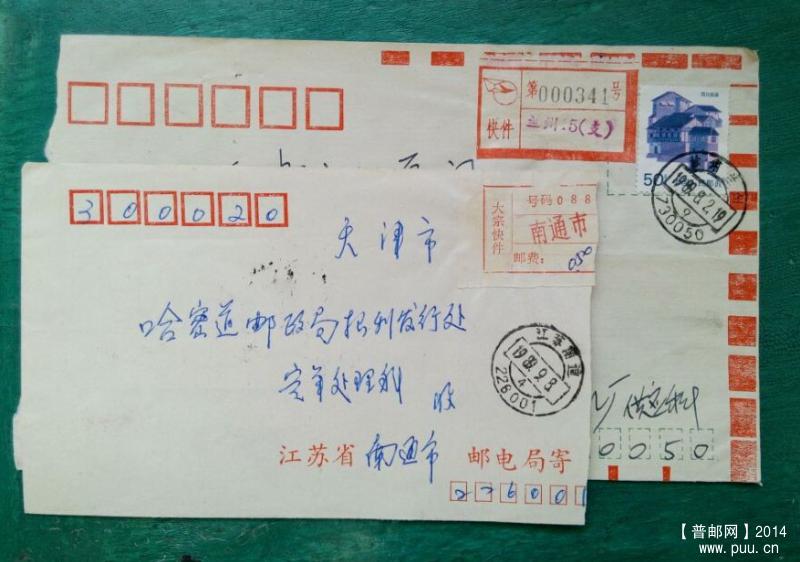 第000341号
快件
兰州.5(支)
50
1989.8.2.19
730050
供应科
0050
300020
天津市
大宗快件
号码088
南通市
邮费：
050
哈密道邮政局报刊发行处
定单处理科
收
江苏南通
1989.9.8
4
226001
江苏省南通市 邮电局寄
226001
【普邮网】2014
www.puu.cn